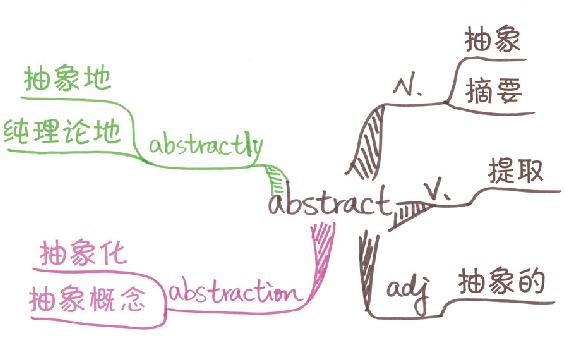 抽象
N.
摘要
抽象地
纯理论地
abstractly
abstract
V.
提取
抽象化
抽象概念
abstraction
adj
抽象的